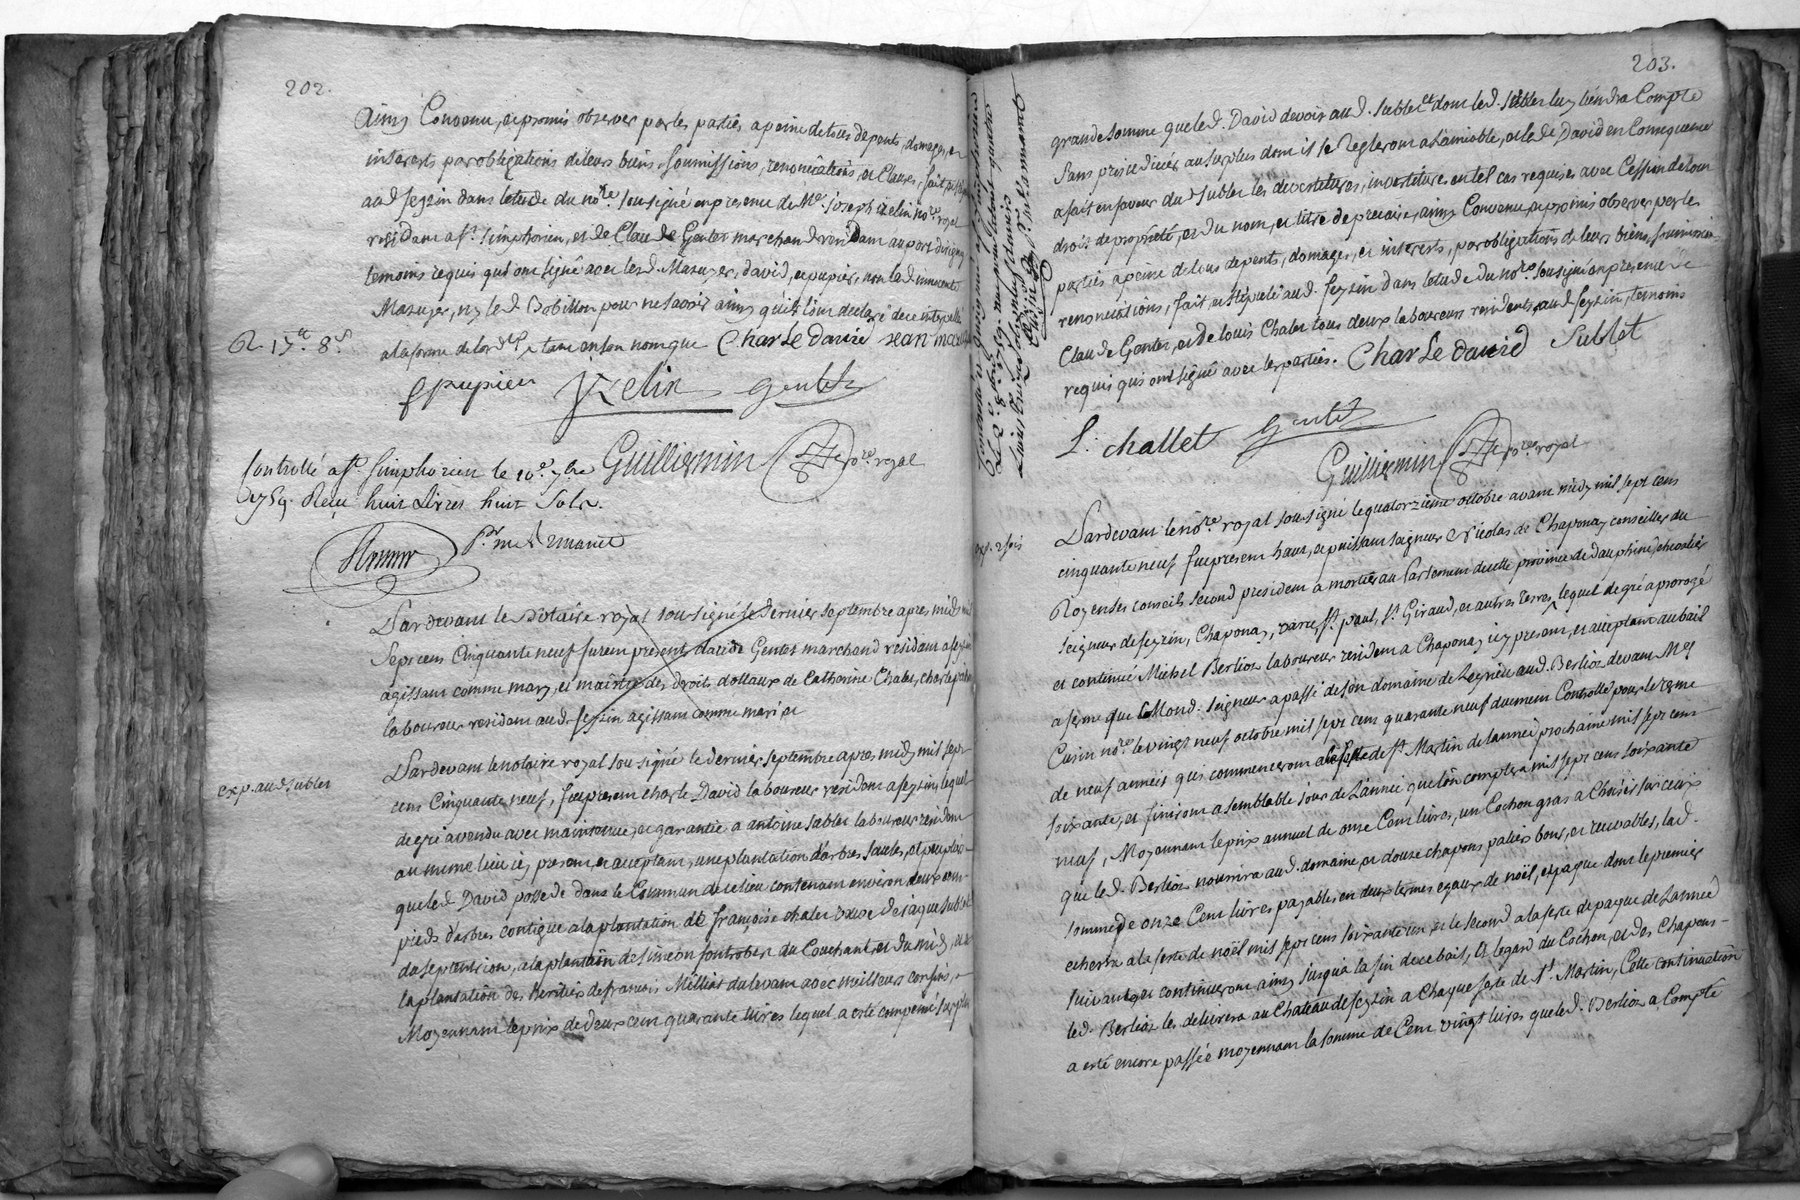 202.
Ainsy Convenu, et promis observer par les parties a peine de tous depents, domages, et
interests par obligations de leurs biens, soumissions, renonciations, et Clauses, fait
aud. feyzin dans letude du nore. sousigné en presence de Me. joseph Velin nore. royal
residam a St. simphorien, et de Claude Gentet marchand residam au port
temoins requis qui ont signé avec lesd. Mazuyer, david, et pupier, non led.
Mazuyer, ny led. Bobillon pour ne savoir ainsy quils l'ont declaré de ce
a la forme de lord. tant en son nom que Charle david jean
R 15.tt 8.s
fpupier Velin gentet
Controllé a St. simphorien le 10e. 7bre Guilliermin nore. royal
1759. Reçu huit Livres huit Sols.
pr. mr Armanet
Pardevant le Notaire royal sousigné le dernier septembre apres midy mil
Sept cens Cinquante neuf furent present davide Gentet marchand residant a feyzin
agissant comme mary, et maitre des droits dottaux de Catherine Chalet,
laboureur residant aud. feyzin agissant comme mari et
exp. aud. sublet
Pardevant le notaire royal sousigné le dernier septembre apres midy mil sept
cens Cinquante neuf, fut present charle David laboureur residant a feyzin lequel
de gré a vendu avec maintenue, et garantie a antoine Sublet laboureur residant
au meme lieu icy present et acceptant, une plantation d'arbres saules, et peupliers
que led. David possede dans le Commun de ce lieu contenant environ deux cens
pieds d'arbres contigue a la plantation de françoise chalet veuve de jaque sublet
du septentrion, a la plantation de simeon fontrobert du Couchant, et du midy, et a
la plantation des heritiers de francois Milliat du levant avec meilleurs confins,
Moyennant le prix de deux cens quarante livres lequel a esté compensé sur plus
203.
grande somme que led. David devoit aud. sublet et dont led. sublet luy tiendra Compte
sans prejudicier au surplus dont il se regleront a l'amiable, et led. David en Consequence
a fait en faveur dud. sublet les devestitures, investitures en tel cas requises avec Cession de tout
droit de proprieté, et du nom, et titre de precaire, ainsy Convenu, et promis observer par les
parties a peine de tous depents, domages, et interests, par obligations de leurs biens, soumissions
renonciations, fait, et stipulé aud. feyzin dans letude du nore. sousigné en presence de
Claude Gentet, et de louis Chalet tous deux laboureurs residents aud. feyzin, temoins
requis qui ont signé avec les parties. Charle david Sublet
L. challet gentet
Guilliermin nore. royal
exp. 2 fois
Pardevant le nore. royal sousigné le quatorzieme octobre avant midy mil sept cens
cinquante neuf fut present haut, et puissant seigneur Nicolas de Chaponay conseiller du
Roy en ses conseils second president a mortier au Parlement de cette province de dauphiné chevalier
seigneur de feyzin, Chaponay, St. paul, St. Giraud, et autres terres, lequel de gré a prorogé
et continué Michel Berlioz laboureur residant a Chaponay icy present, et acceptant au bail
a ferme que led. seigneur a passé de son domaine de Leyrieu aud. Berlioz devant Me
Cusin nore. le vingt neuf octobre mil sept cens quarante neuf duement Controllé pour le terme
de neuf années qui commenceront a la feste de St. Martin de lannée prochaine mil sept cens
soixante, et finiront a semblable jour de l'année que l'on comptera mil sept cens soixante
neuf, Moyennant le prix annuel de onze Cent livres, un Cochon gras a choisir sur ceux
que led. Berlioz nourrira aud. domaine, et douze chapons bons, et recevables, lad.
somme de onze Cent livres payables en deux termes egaux de noël, et paque dont le premier
echerra a la feste de noël mil sept cens soixante un et le second a la feste de paque de lannée
suivante, et continueront ainsy jusqu'a la fin de ce bail, A legard du Cochon, et des Chapons
led. Berlioz les delivrera au Chateau de feyzin a Chaque feste de St. Martin, Cette continuation
a esté encore passée moyennant la somme de Cent vingt livres que led. Berlioz a Compté